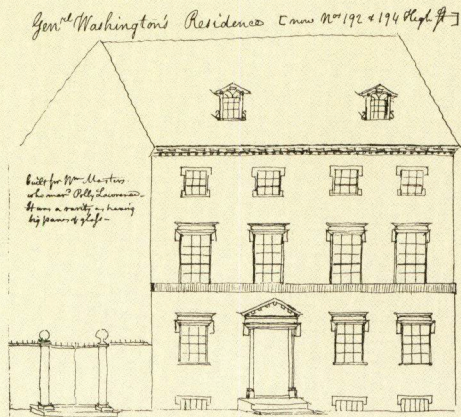 Gen.rel Washington's Residence [now Nos 192 & 194 High St]
built for Wm Masters
who mard Polly Lawrence -
It was a rarity as having
big panes of glass -